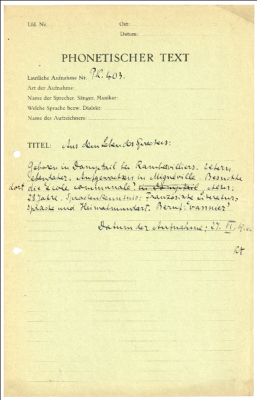 Lfd. Nr.
Ort:
Datum:
PHONETISCHER TEXT
Lautliche Aufnahme Nr. PK. 403.
Art der Aufnahme:
Name der Sprecher, Sänger, Musiker:
Welche Sprache bezw. Dialekt:
Name des Aufzeichners
TITEL: Aus dem Leben des Sprechers:
Geboren in Domptail bei Rambervilliers. Eltern
ebendaher. Aufgewachsen in Mignéville. Besuchte
dort die "école communale" in Domptail. Alter:
28 Jahre. Sprachkenntnisse: Französische Literatur-
sprache und Heimatmundart. Beruf: "vannier"
Datum der Aufnahme: 27. VI.